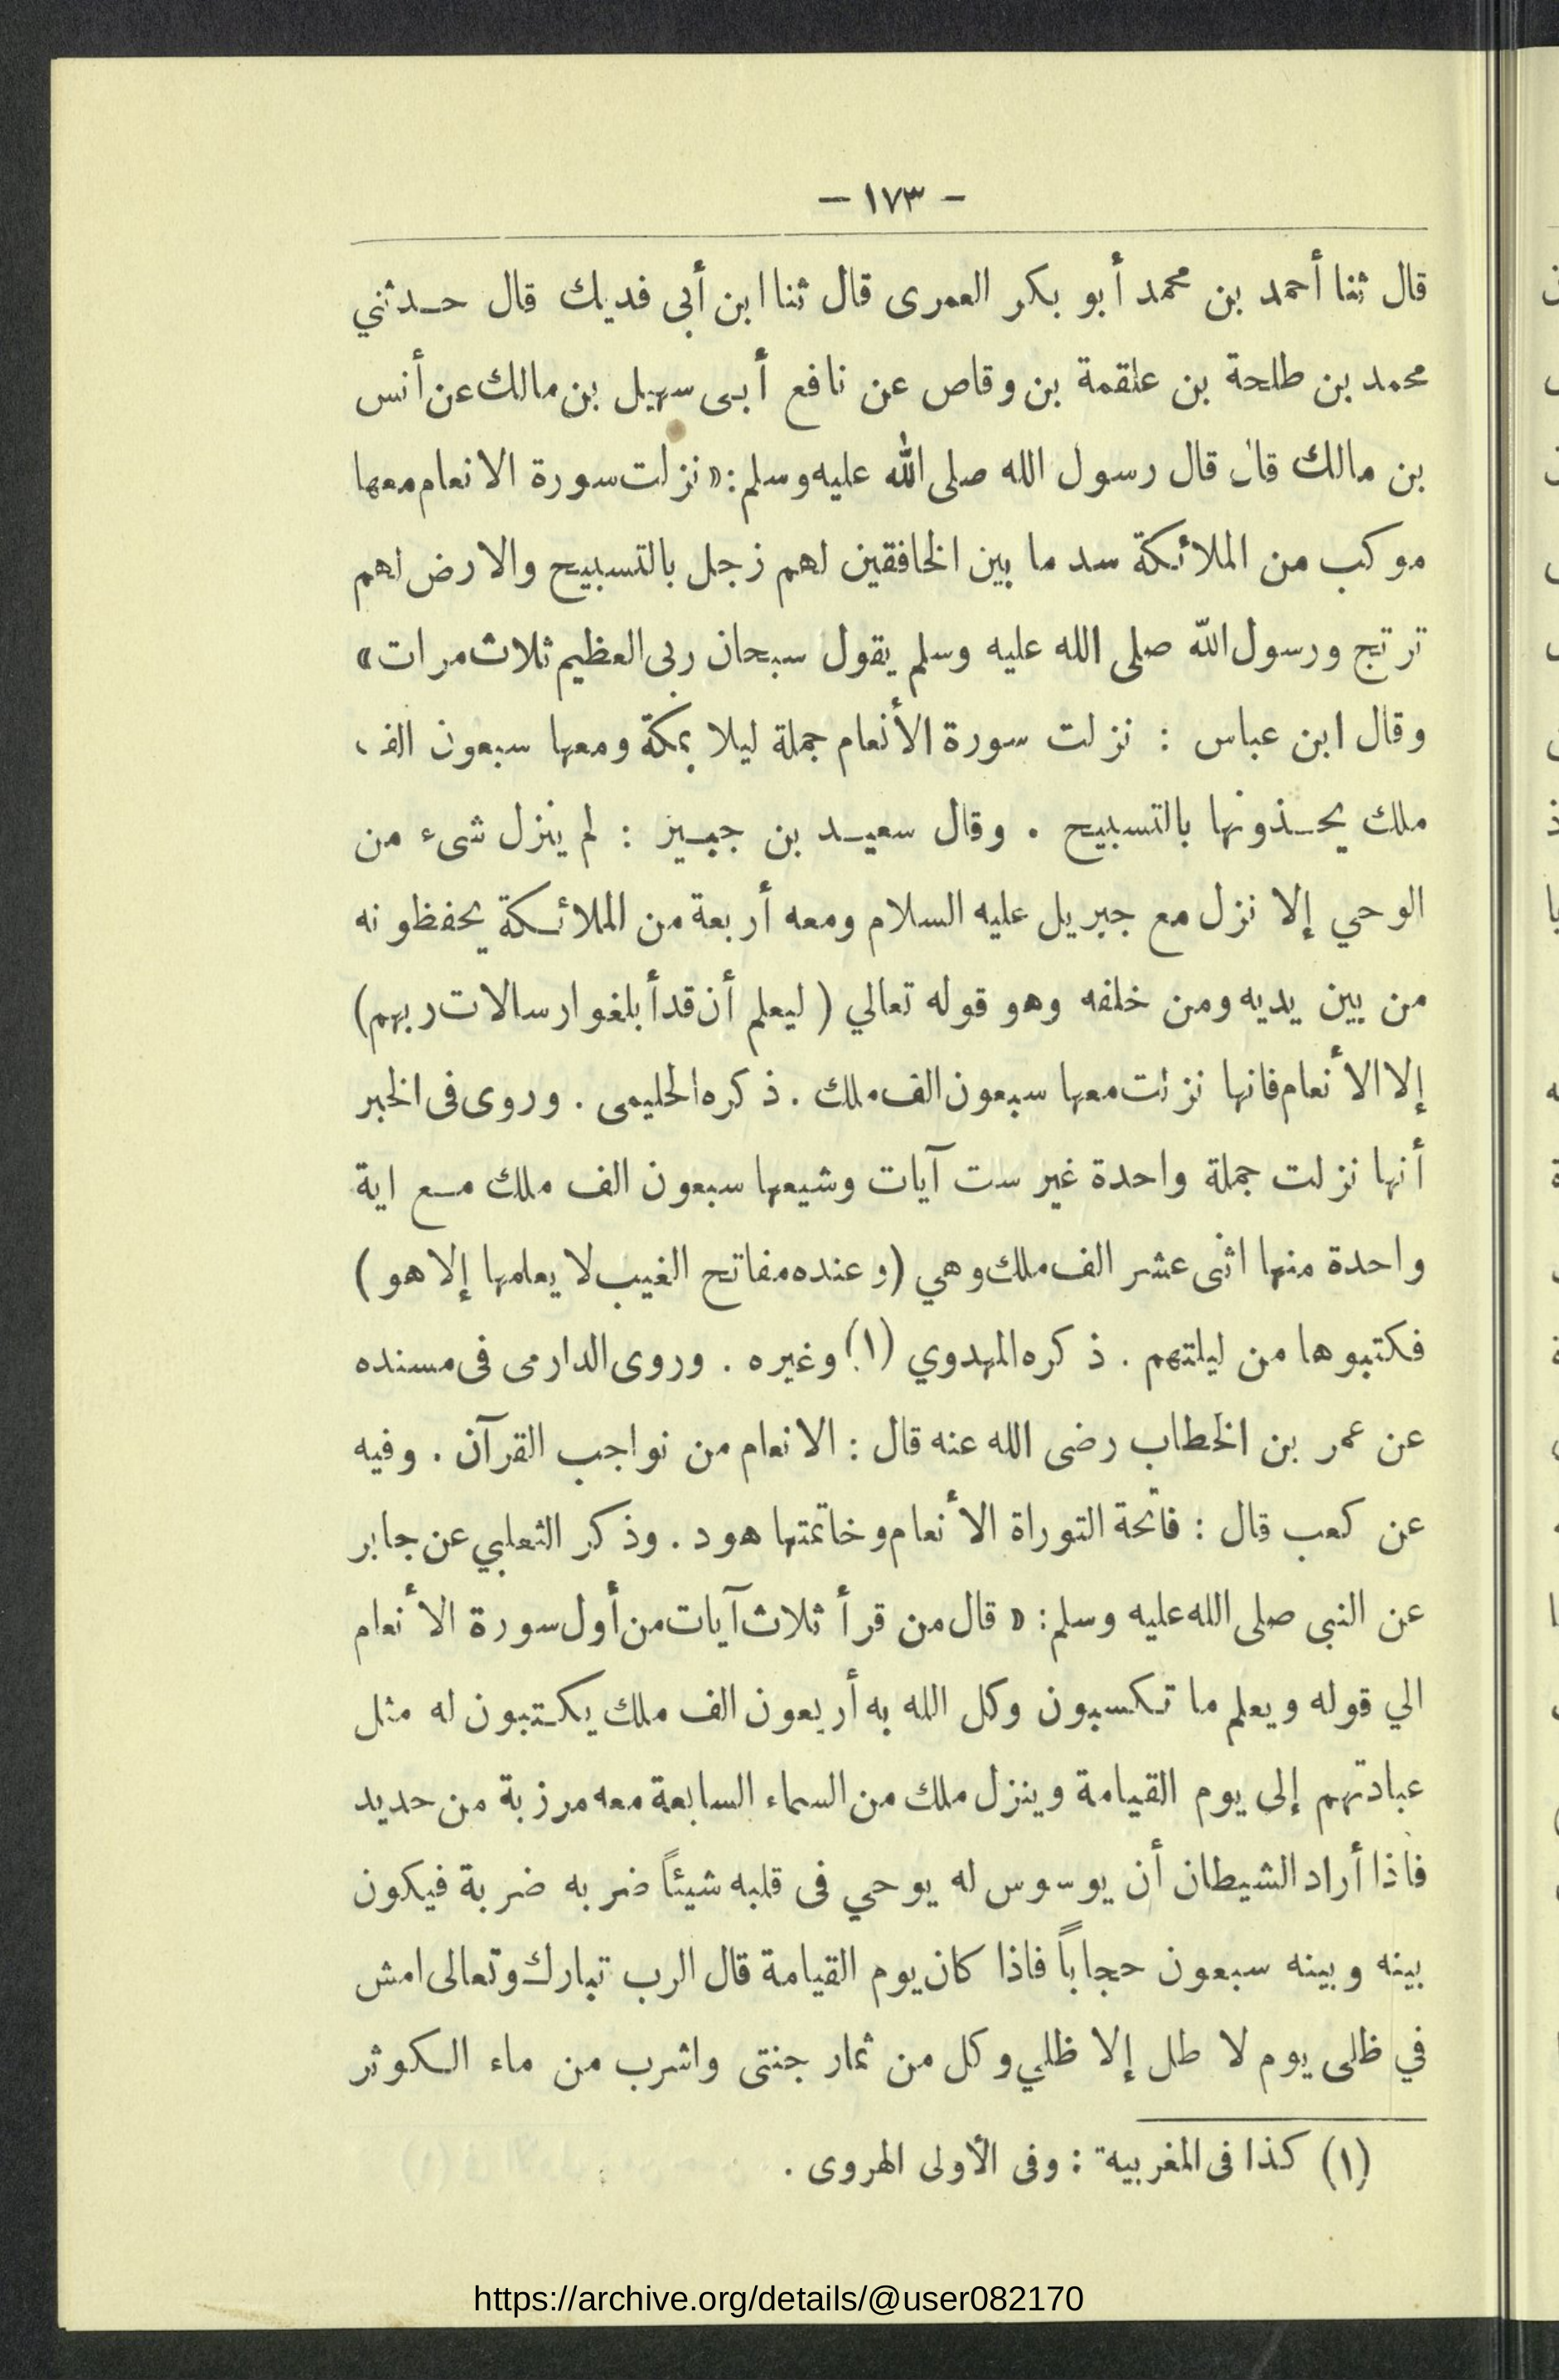 - ١٧٣ -
قال ثنا أحمد بن محمد أبو بكر العمرى قال ثنا ابن أبى فديك قال حدثني
محمد بن طلحة بن علقمة بن وقاص عن نافع أبى سهيل بن مالك عن أنس
بن مالك قال قال رسول الله صلى الله عليه وسلم: «نزلت سورة الانعام معها
موكب من الملائكة سد ما بين الخافقين لهم زجل بالتسبيح والارض لهم
ترتج ورسول الله صلى الله عليه وسلم يقول سبحان ربى العظيم ثلاث مرات»
وقال ابن عباس : نزلت سورة الأنعام جملة ليلا بمكة ومعها سبعون الف
ملك يحذونها بالتسبيح . وقال سعيد بن جبيز : لم ينزل شىء من
الوحي إلا نزل مع جبريل عليه السلام ومعه أربعة من الملائكة يحفظونه
من بين يديه ومن خلفه وهو قوله تعالي ( ليعلم أن قد أبلغوا رسالات ربهم)
إلا الأنعام فانها نزلت معها سبعون الف ملك . ذكره الحليمى . وروى فى الخبر
أنها نزلت جملة واحدة غير ست آيات وشيعها سبعون الف ملك مع اية
واحدة منها اثنى عشر الف ملك وهي (وعنده مفاتح الغيب لا يعلمها إلا هو )
فكتبوها من ليلتهم . ذكره المهدوي (١) وغيره . وروى الدارمى فى مسنده
عن عمر بن الخطاب رضى الله عنه قال : الانعام من نواجب القرآن . وفيه
عن كعب قال : فاتحة التوراة الأنعام وخاتمتها هود . وذكر الثعلبي عن جابر
عن النبى صلى الله عليه وسلم: « قال من قرأ ثلاث آيات من أول سورة الأنعام
الي قوله ويعلم ما تكسبون وكل الله به أربعون الف ملك يكتبون له مثل
عبادتهم إلى يوم القيامة وينزل ملك من السماء السابعة معه مرزبة من حديد
فاذا أراد الشيطان أن يوسوس له يوحي فى قلبه شيئاً ضربه ضربة فيكون
بينه وبينه سبعون حجاباً فاذا كان يوم القيامة قال الرب تبارك وتعالى امش
في ظلى يوم لا طل إلا ظلي وكل من ثمار جنتى واشرب من ماء الكوثر
(١) كذا فى المغربية : وفى الأولى الهروى .
https://archive.org/details/@user082170